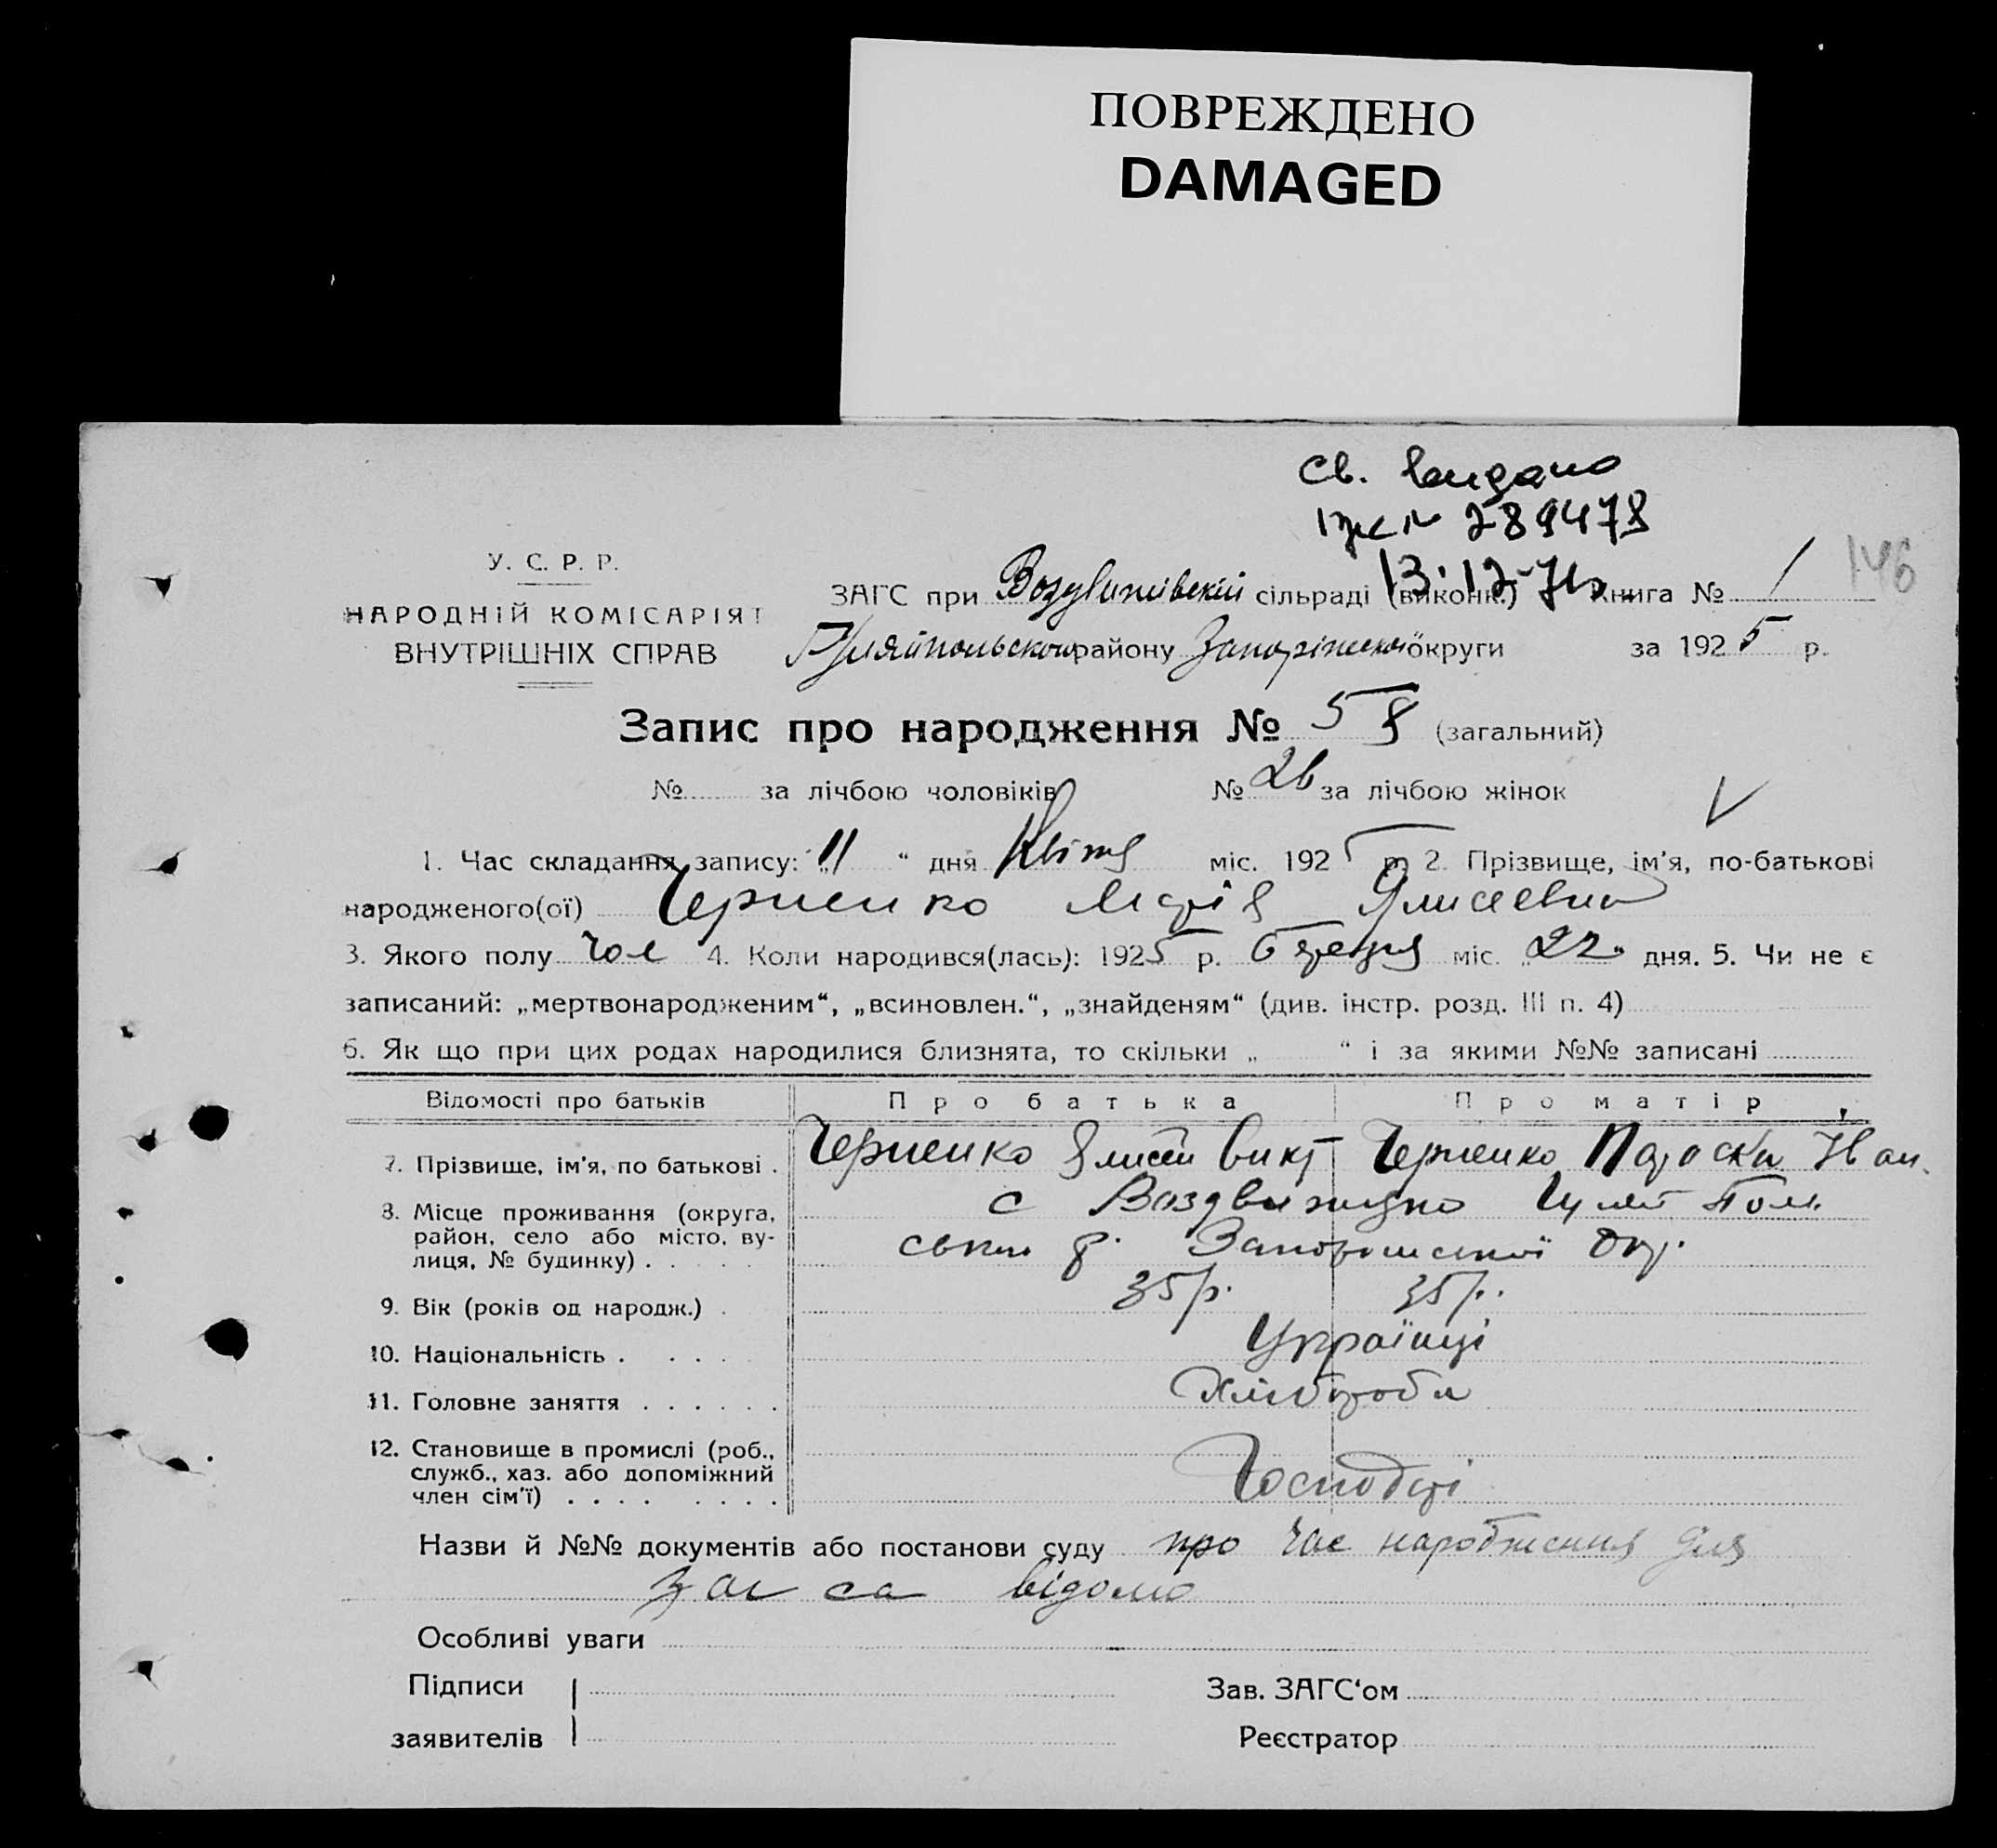 ПОВРЕЖДЕНО
DAMAGED
Св. видано
№ 289478
13.12-71р.
146
У. С. Р. Р.
НАРОДНІЙ КОМІСАРІЯТ
ВНУТРІШНІХ СПРАВ
ЗАГС при Воздвижівській сільраді (виконк.) Книга № 1
Гуляйпольського району Запоріжської округи за 1925 р.
Запис про народження № 58 (загальний)
№ за лічбою чоловіків № 26 за лічбою жінок
1. Час складання запису: „11“ дня Квітня міс. 1925 р. 2. Прізвище, ім'я, по-батькові
народженого(ої) Черненко Марія Ялисеевна
3. Якого полу чол 4. Коли народився(лась): 1925 р. березня міс. „22“ дня. 5. Чи не є
записаний: „мертвонародженим“, „всиновлен.“, „знайденям“ (див. інстр. розд. III п. 4)
6. Як що при цих родах народилися близнята, то скільки „ “ і за якими №№ записані
Відомості про батьків Про батька Про матір
7. Прізвище, ім'я, по батькові . Черненко Ялисей Викт Черненко Параска Іван.
8. Місце проживання (округа, район, село або місто, вулиця, № будинку) . с Воздвижувка Гуляй Поль
ськи р. Запорожської Окр.
9. Вік (років од народж.) . 35 р. 35 р.
10. Національність . . . . Українці
11. Головне заняття . . . . . . Хлібороби
12. Становище в промислі (роб., служб., хаз. або допоміжний член сім'ї) . . . . Господарі
Назви й №№ документів або постанови суду про час народження для
загса відомо
Особливі уваги
Підписи Зав. ЗАГС'ом
заявителів Реєстратор